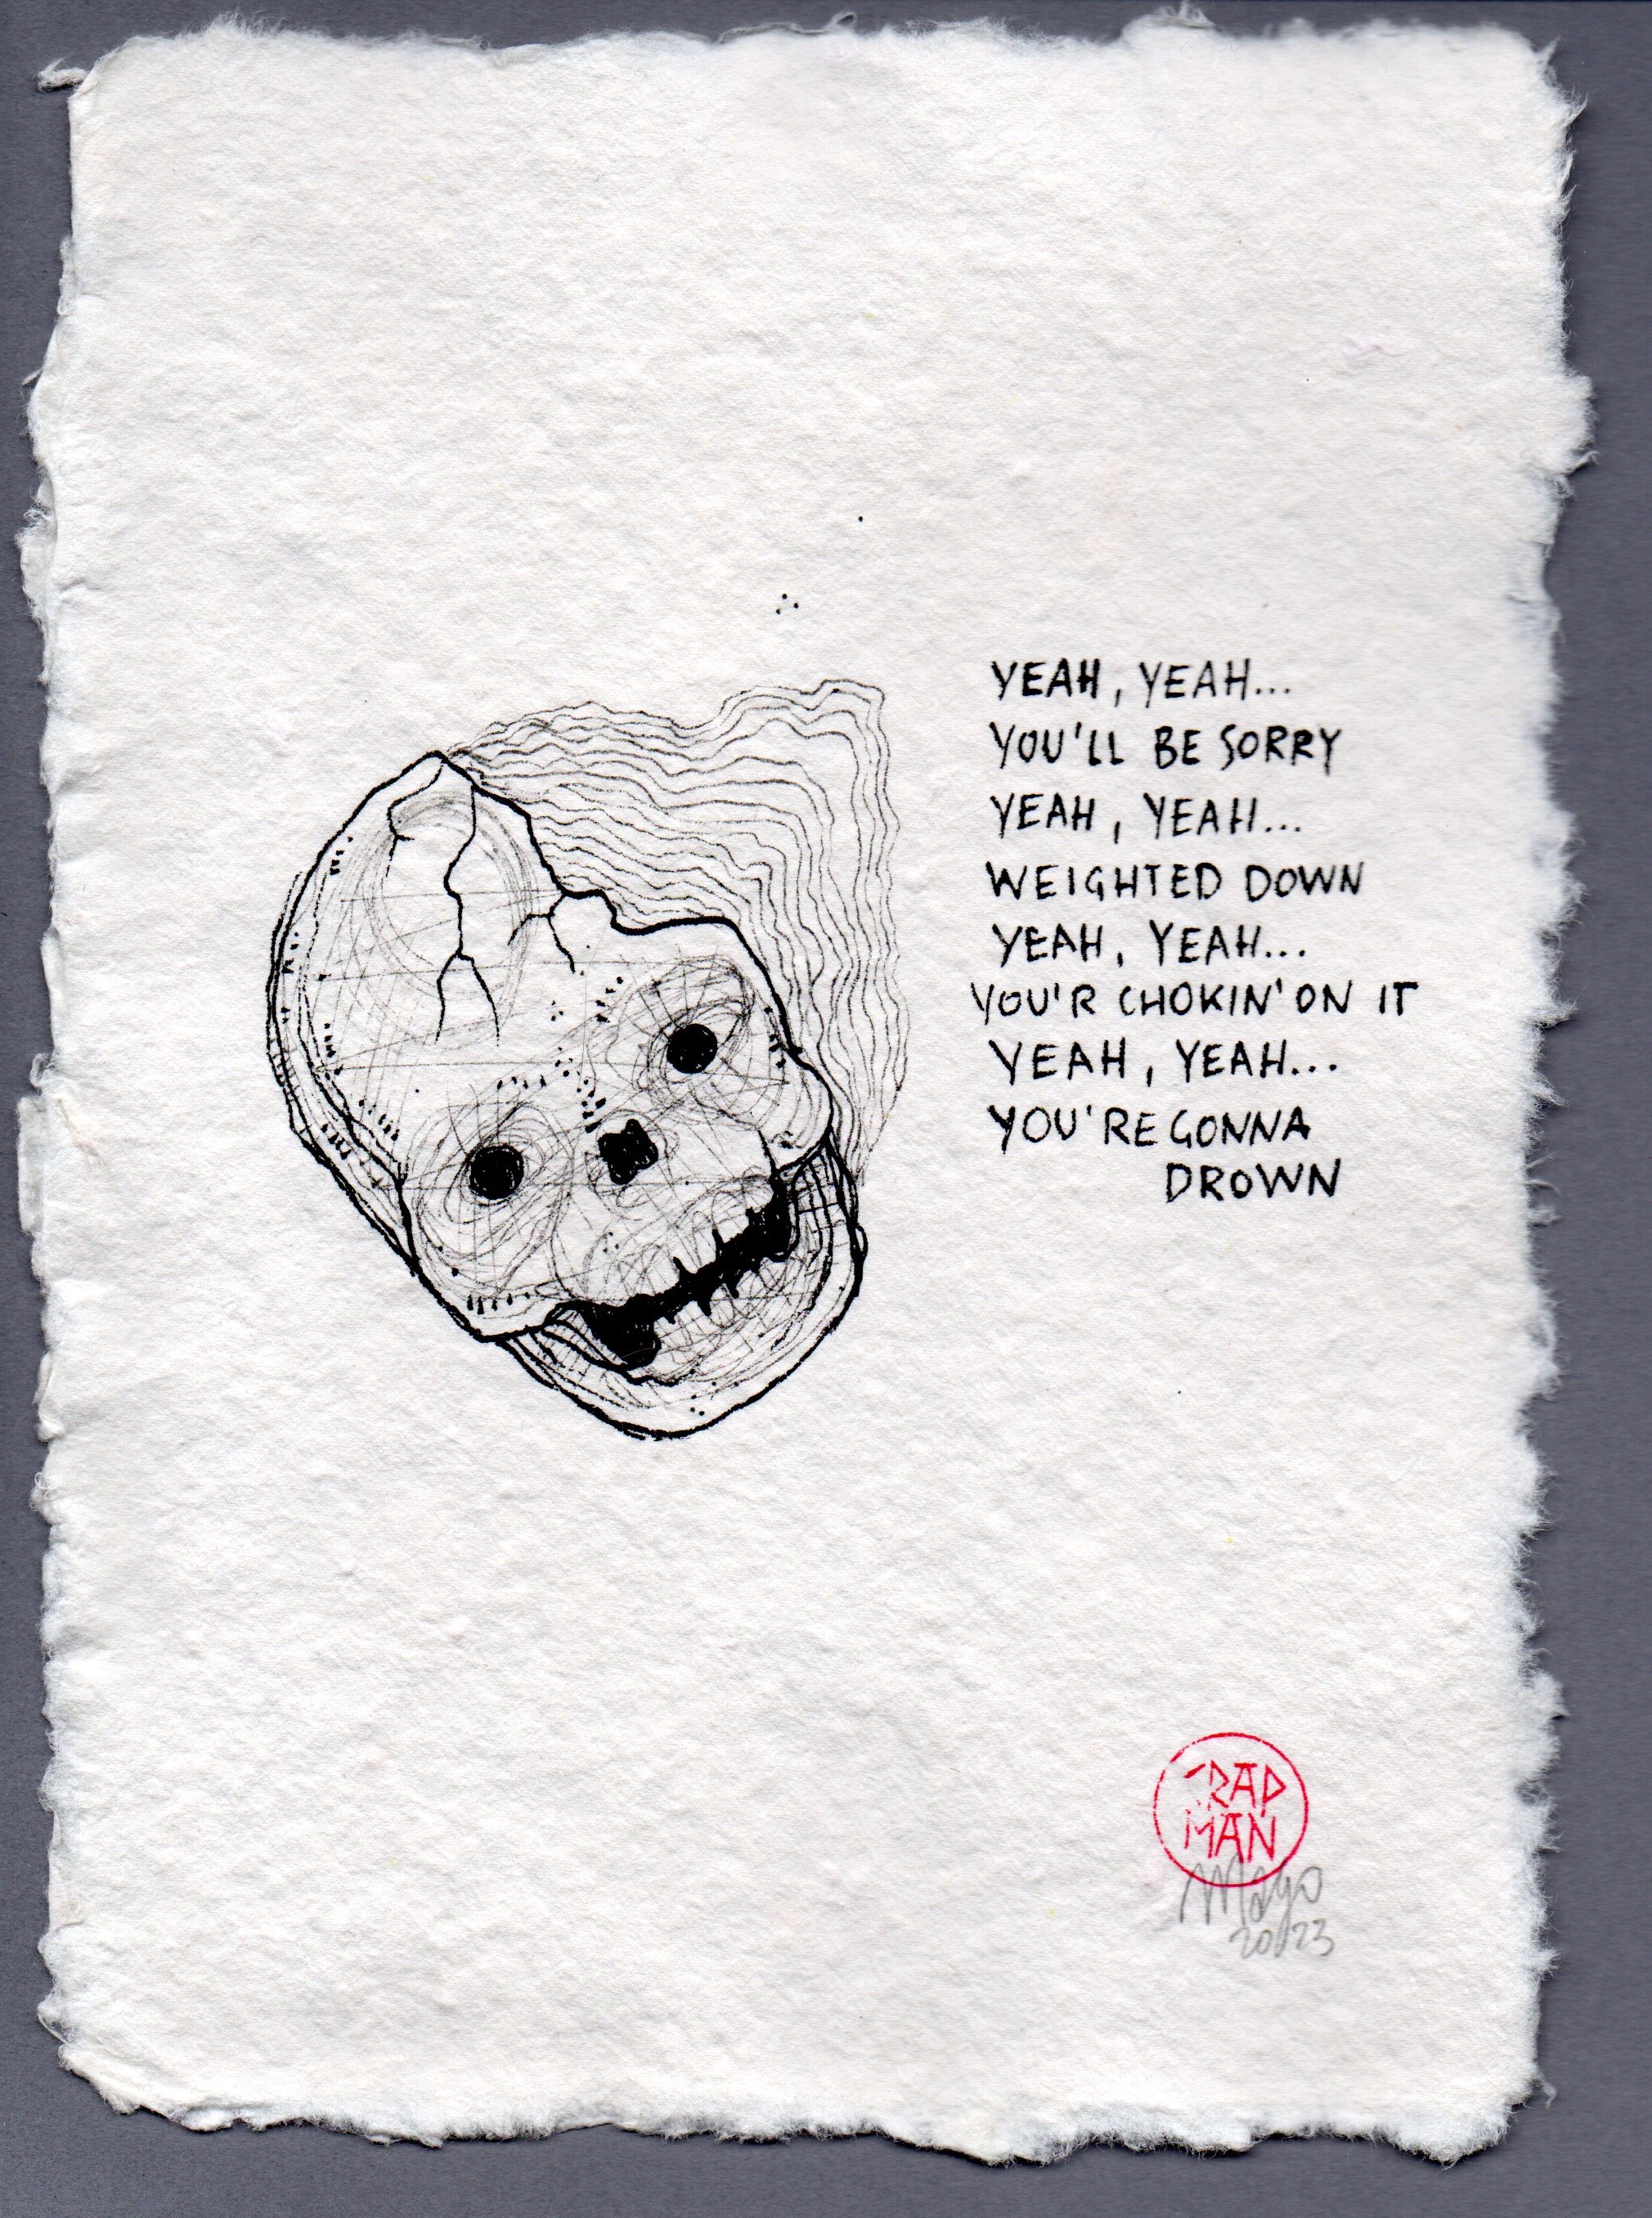 YEAH, YEAH...
YOU'LL BE SORRY
YEAH, YEAH...
WEIGHTED DOWN
YEAH, YEAH...
YOU'R CHOKIN' ON IT
YEAH, YEAH...
YOU'RE GONNA
DROWN
MAN
2023